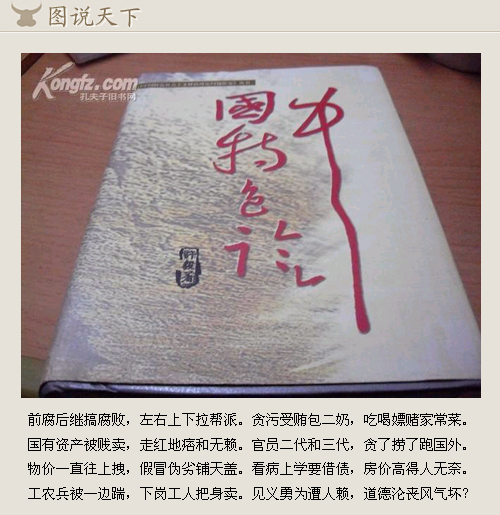 图说天下
Kongfz.com
孔夫子旧书网
中
國特色论
前腐后继搞腐败，左右上下拉帮派。贪污受贿包二奶，吃喝嫖赌家常菜。
国有资产被贱卖，走红地痞和无赖。官员二代和三代，贪了捞了跑国外。
物价一直往上拽，假冒伪劣铺天盖。看病上学要借债，房价高得人无奈。
工农兵被一边踹，下岗工人把身卖。见义勇为遭人赖，道德沦丧风气坏?